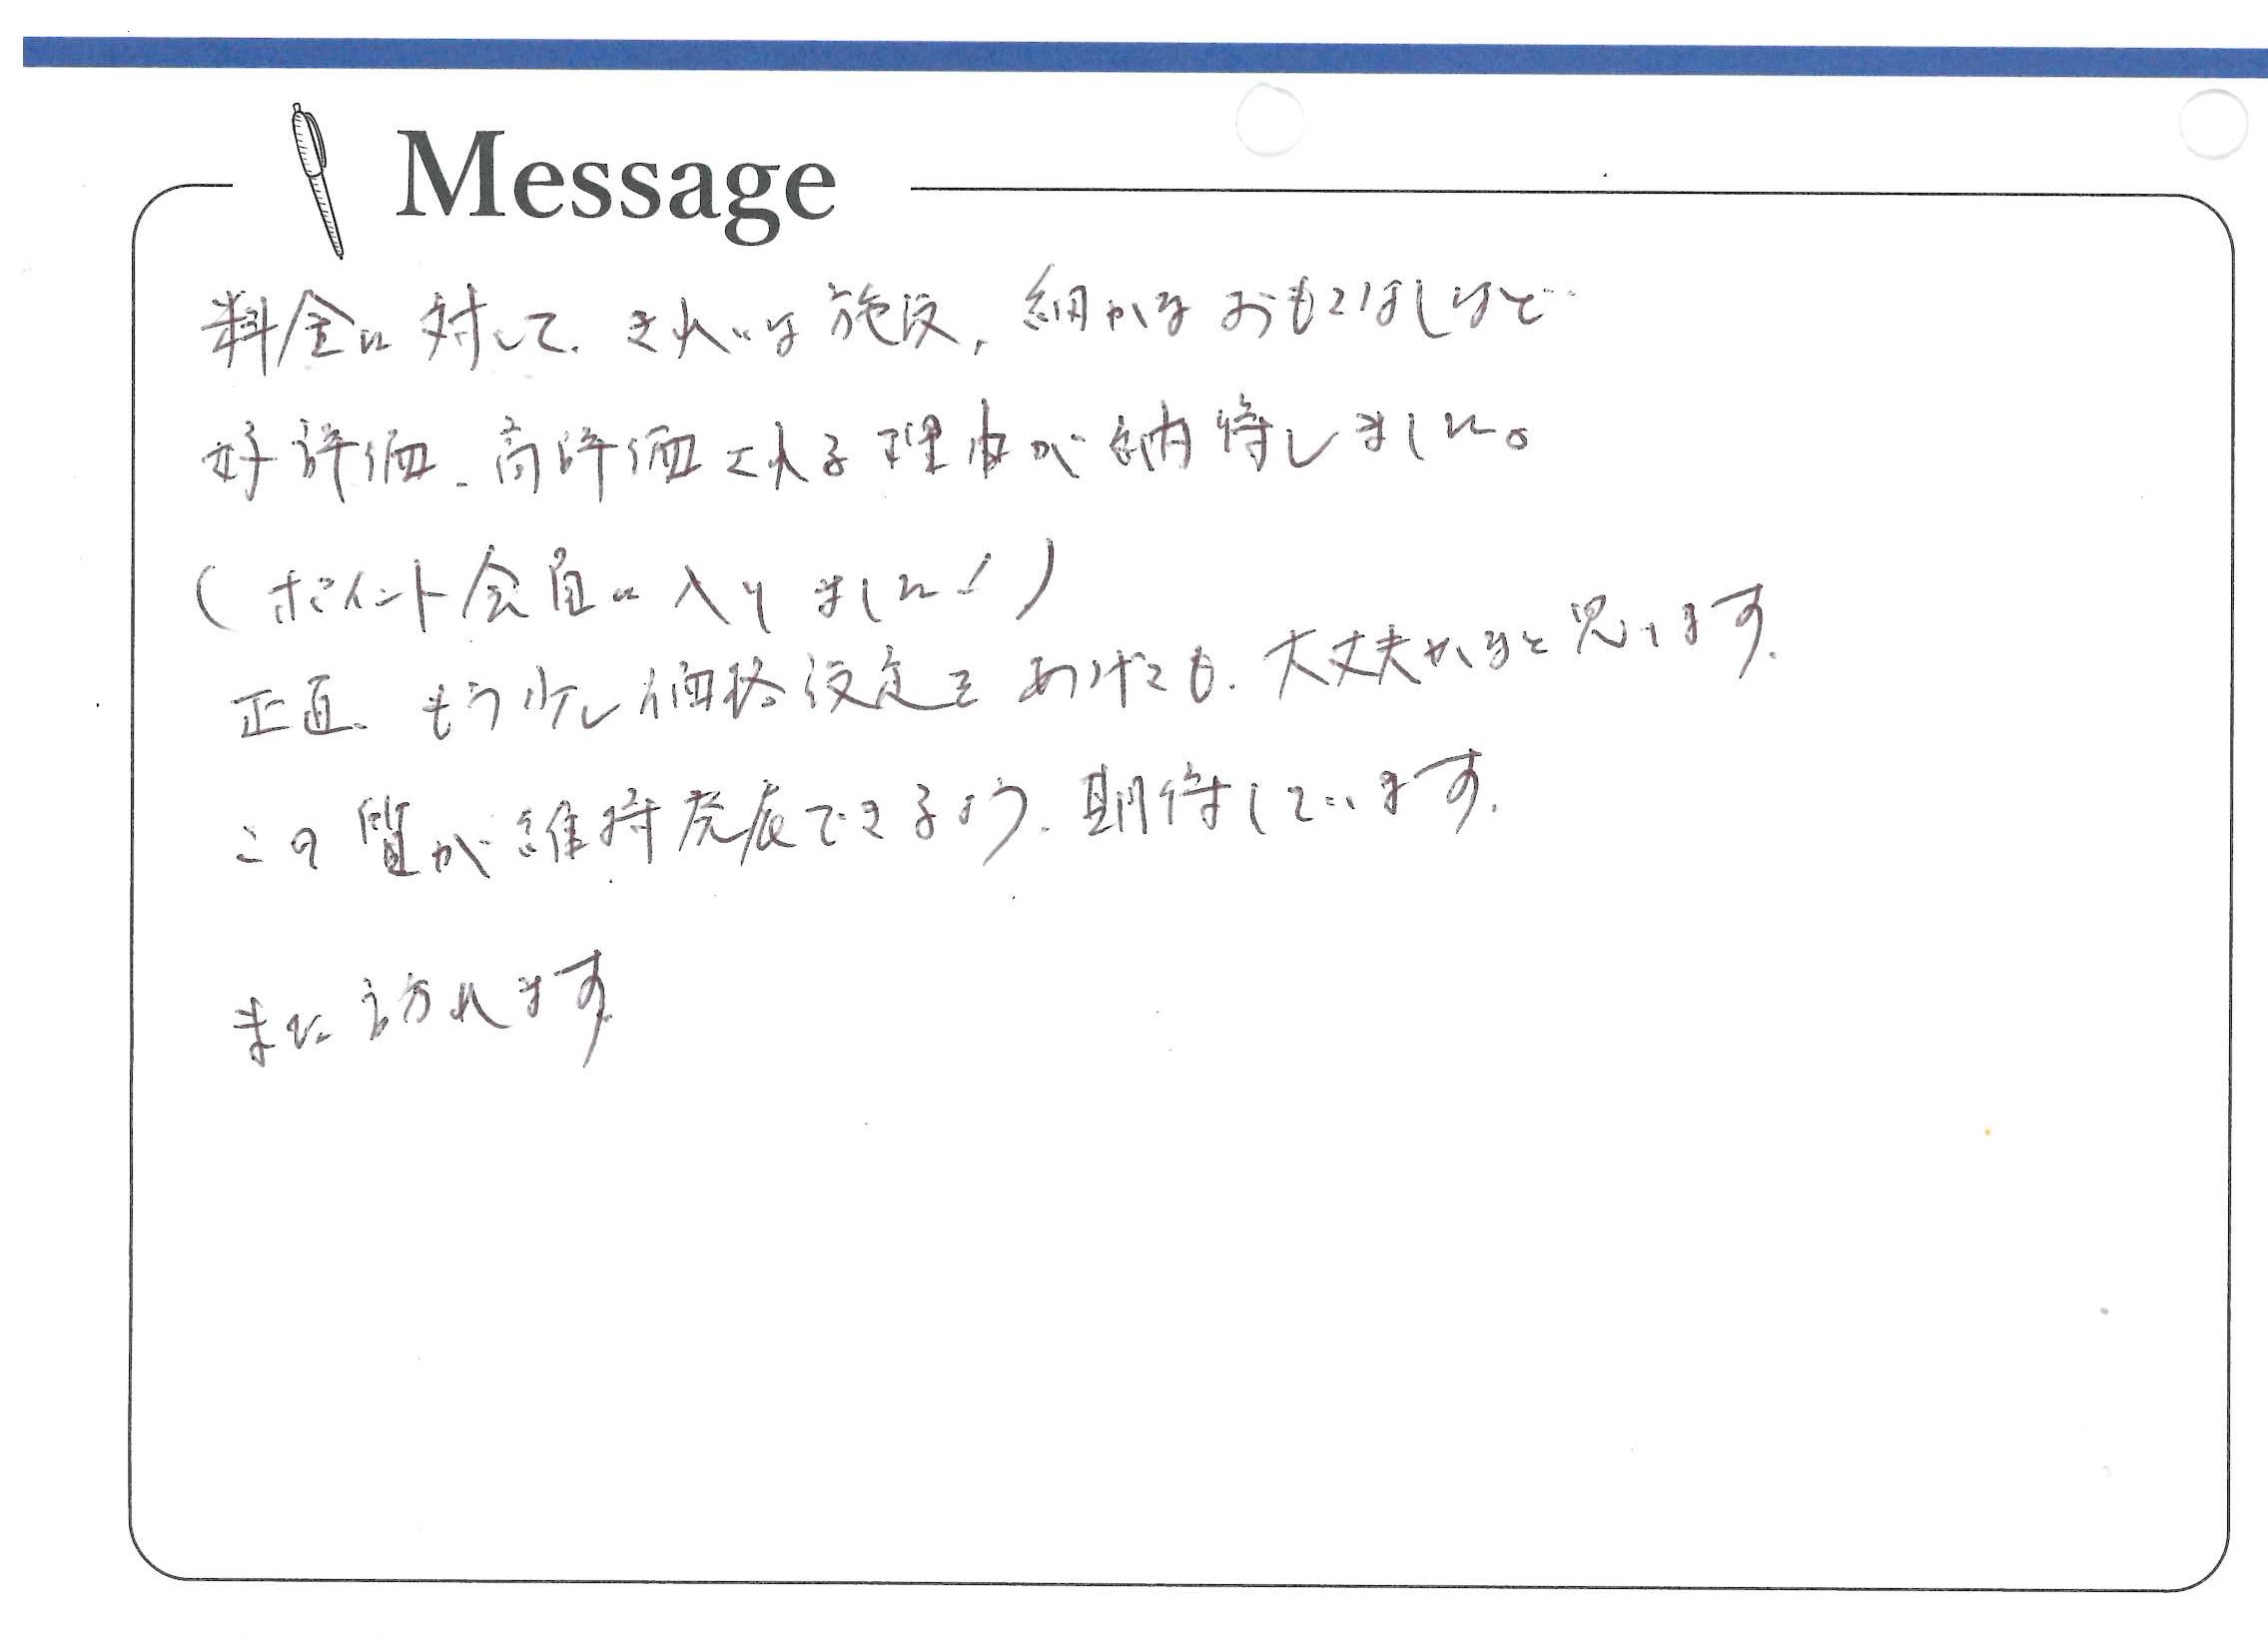 Message
料金に対して、きれいな施設、細かなおもてなしなど
好評価、高評価される理由が納得しました。
(ポイント会員に入りました!)
正直、もう少し価格設定をあげても、大丈夫かなと思います。
この質が維持発展できるよう、期待しています。
また訪れます